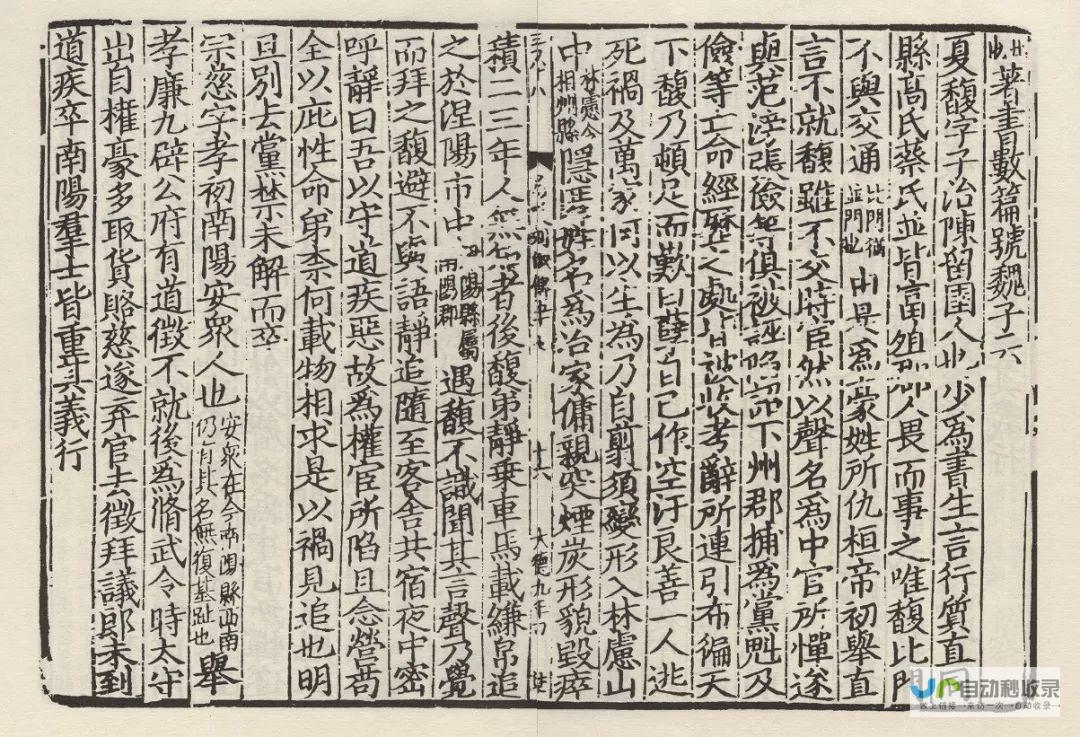 著書數篇號魏子
夏馥字子治陳留圉人也少為書生言行質直
縣高氏蔡氏並皆富殖郡人畏而事之唯馥比門
不與交通比門猶並門也由是為豪姓所仇桓帝初舉直
言不就馥雖不交時宦然以聲名為中官所憚遂
與范滂張儉等俱被誣陷詔下州郡捕為黨魁及
儉等亡命經歷之處皆被收考辭所連引布徧天
下馥乃頓足而歎曰孽自己作空汙良善一人逃
死禍及萬家何以生為乃自翦須變形入林慮山
中林慮今相州縣隱匿姓名為冶家傭親突煙炭形貌毀瘁
十六 大德九年
積二三年人無知者後馥弟靜乘車馬載縑帛追
之於涅陽市中涅陽縣屬南陽郡遇馥不識聞其言聲乃覺
而拜之馥避不與語靜追隨至客舍共宿夜中密
呼靜曰吾以守道疾惡故為權宦所陷且念營苟
全以庇性命弟柰何載物相求是以禍見追也明
旦別去黨禁未解而卒
宗慈字孝初南陽安衆人也安衆在今南陽縣西南仍有其名無復基趾也舉
孝廉九辟公府有道徵不就後為脩武令時太守
出自權豪多取貨賂慈遂弃官去徵拜議郎未到
道疾卒南陽羣士皆重其義行
自动秒收录
做上链接→来访一次→自动收录